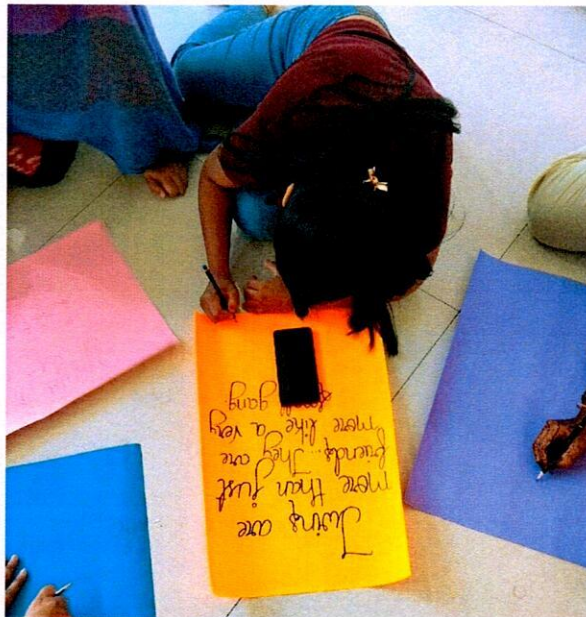 Twins are
more than just
friends... They are
more like a very
small gang.